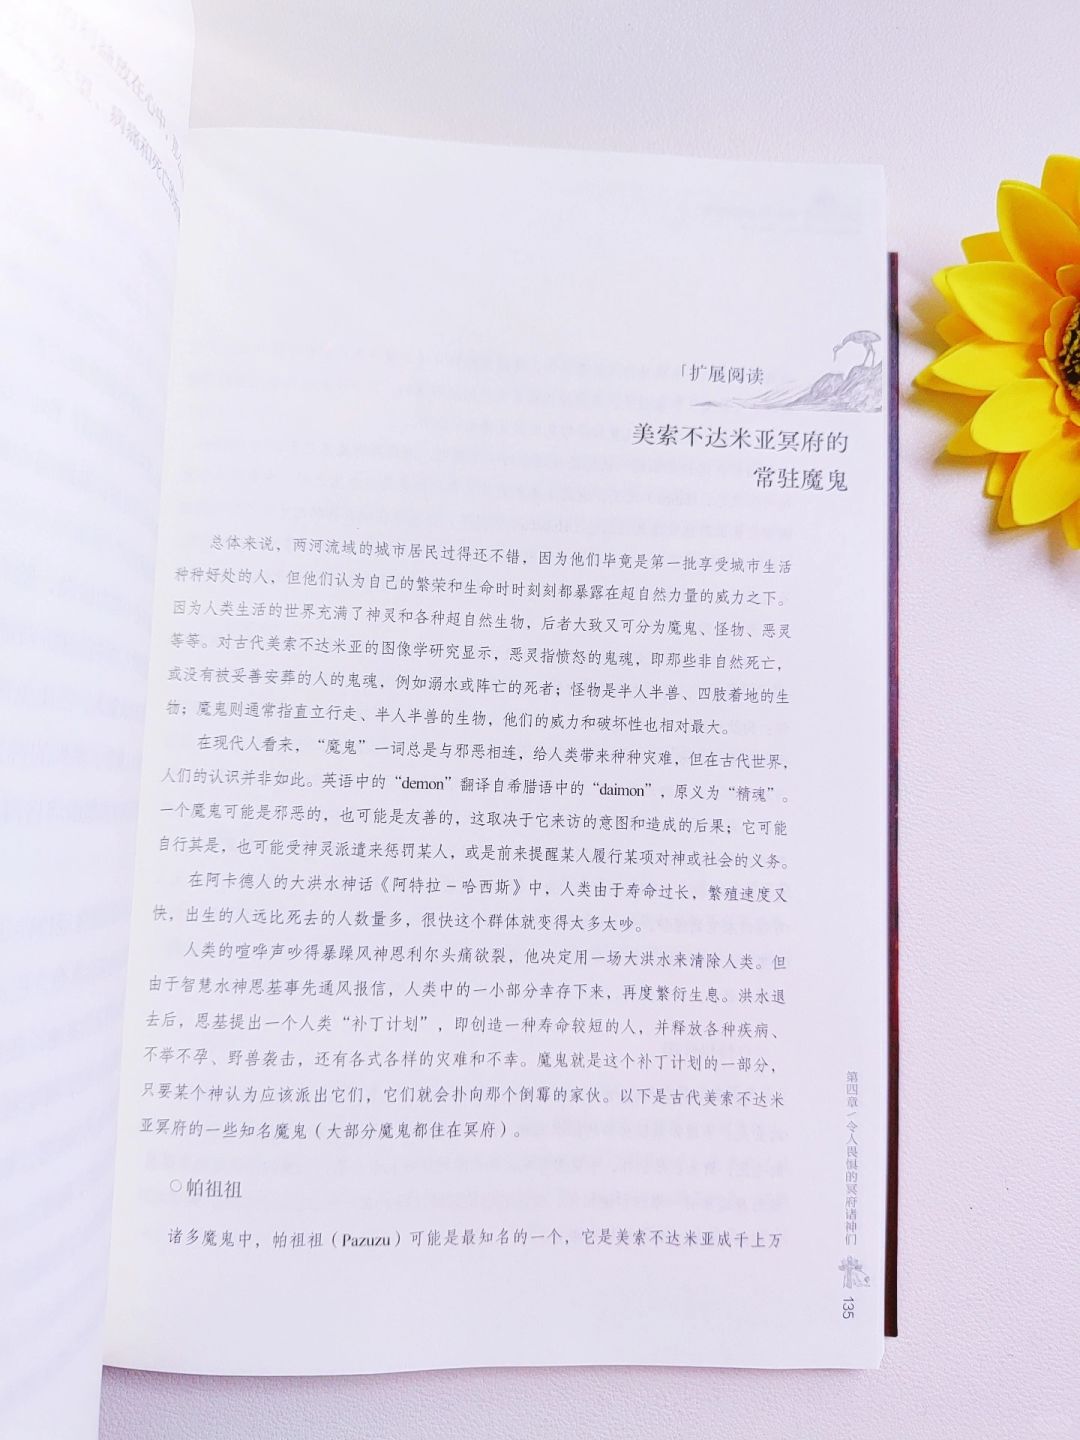 放在心中，
病痛和死亡的
「扩展阅读
美索不达米亚冥府的
常驻魔鬼
总体来说，两河流域的城市居民过得还不错，因为他们毕竟是第一批享受城市生活
种种好处的人，但他们认为自己的繁荣和生命时时刻刻都暴露在超自然力量的威力之下。
因为人类生活的世界充满了神灵和各种超自然生物，后者大致又可分为魔鬼、怪物、恶灵
等等。对古代美索不达米亚的图像学研究显示，恶灵指愤怒的鬼魂，即那些非自然死亡，
或没有被妥善安葬的人的鬼魂，例如溺水或阵亡的死者；怪物是半人半兽、四肢着地的生
物；魔鬼则通常指直立行走、半人半兽的生物，他们的威力和破坏性也相对最大。
在现代人看来，“魔鬼”一词总是与邪恶相连，给人类带来种种灾难，但在古代世界，
人们的认识并非如此。英语中的“demon”翻译自希腊语中的“daimon”，原义为“精魂”。
一个魔鬼可能是邪恶的，也可能是友善的，这取决于它来访的意图和造成的后果；它可能
自行其是，也可能受神灵派遣来惩罚某人，或是前来提醒某人履行某项对神或社会的义务。
在阿卡德人的大洪水神话《阿特拉－哈西斯》中，人类由于寿命过长，繁殖速度又
快，出生的人远比死去的人数量多，很快这个群体就变得太多太吵。
人类的喧哗声吵得暴躁风神恩利尔头痛欲裂，他决定用一场大洪水来清除人类。但
由于智慧水神恩基事先通风报信，人类中的一小部分幸存下来，再度繁衍生息。洪水退
去后，恩基提出一个人类“补丁计划”，即创造一种寿命较短的人，并释放各种疾病、
不举不孕、野兽袭击，还有各式各样的灾难和不幸。魔鬼就是这个补丁计划的一部分，
只要某个神认为应该派出它们，它们就会扑向那个倒霉的家伙。以下是古代美索不达米
亚冥府的一些知名魔鬼（大部分魔鬼都住在冥府）。
○帕祖祖
诸多魔鬼中，帕祖祖（Pazuzu）可能是最知名的一个，它是美索不达米亚成千上万
第四章/令人畏惧的冥府诸神们
135